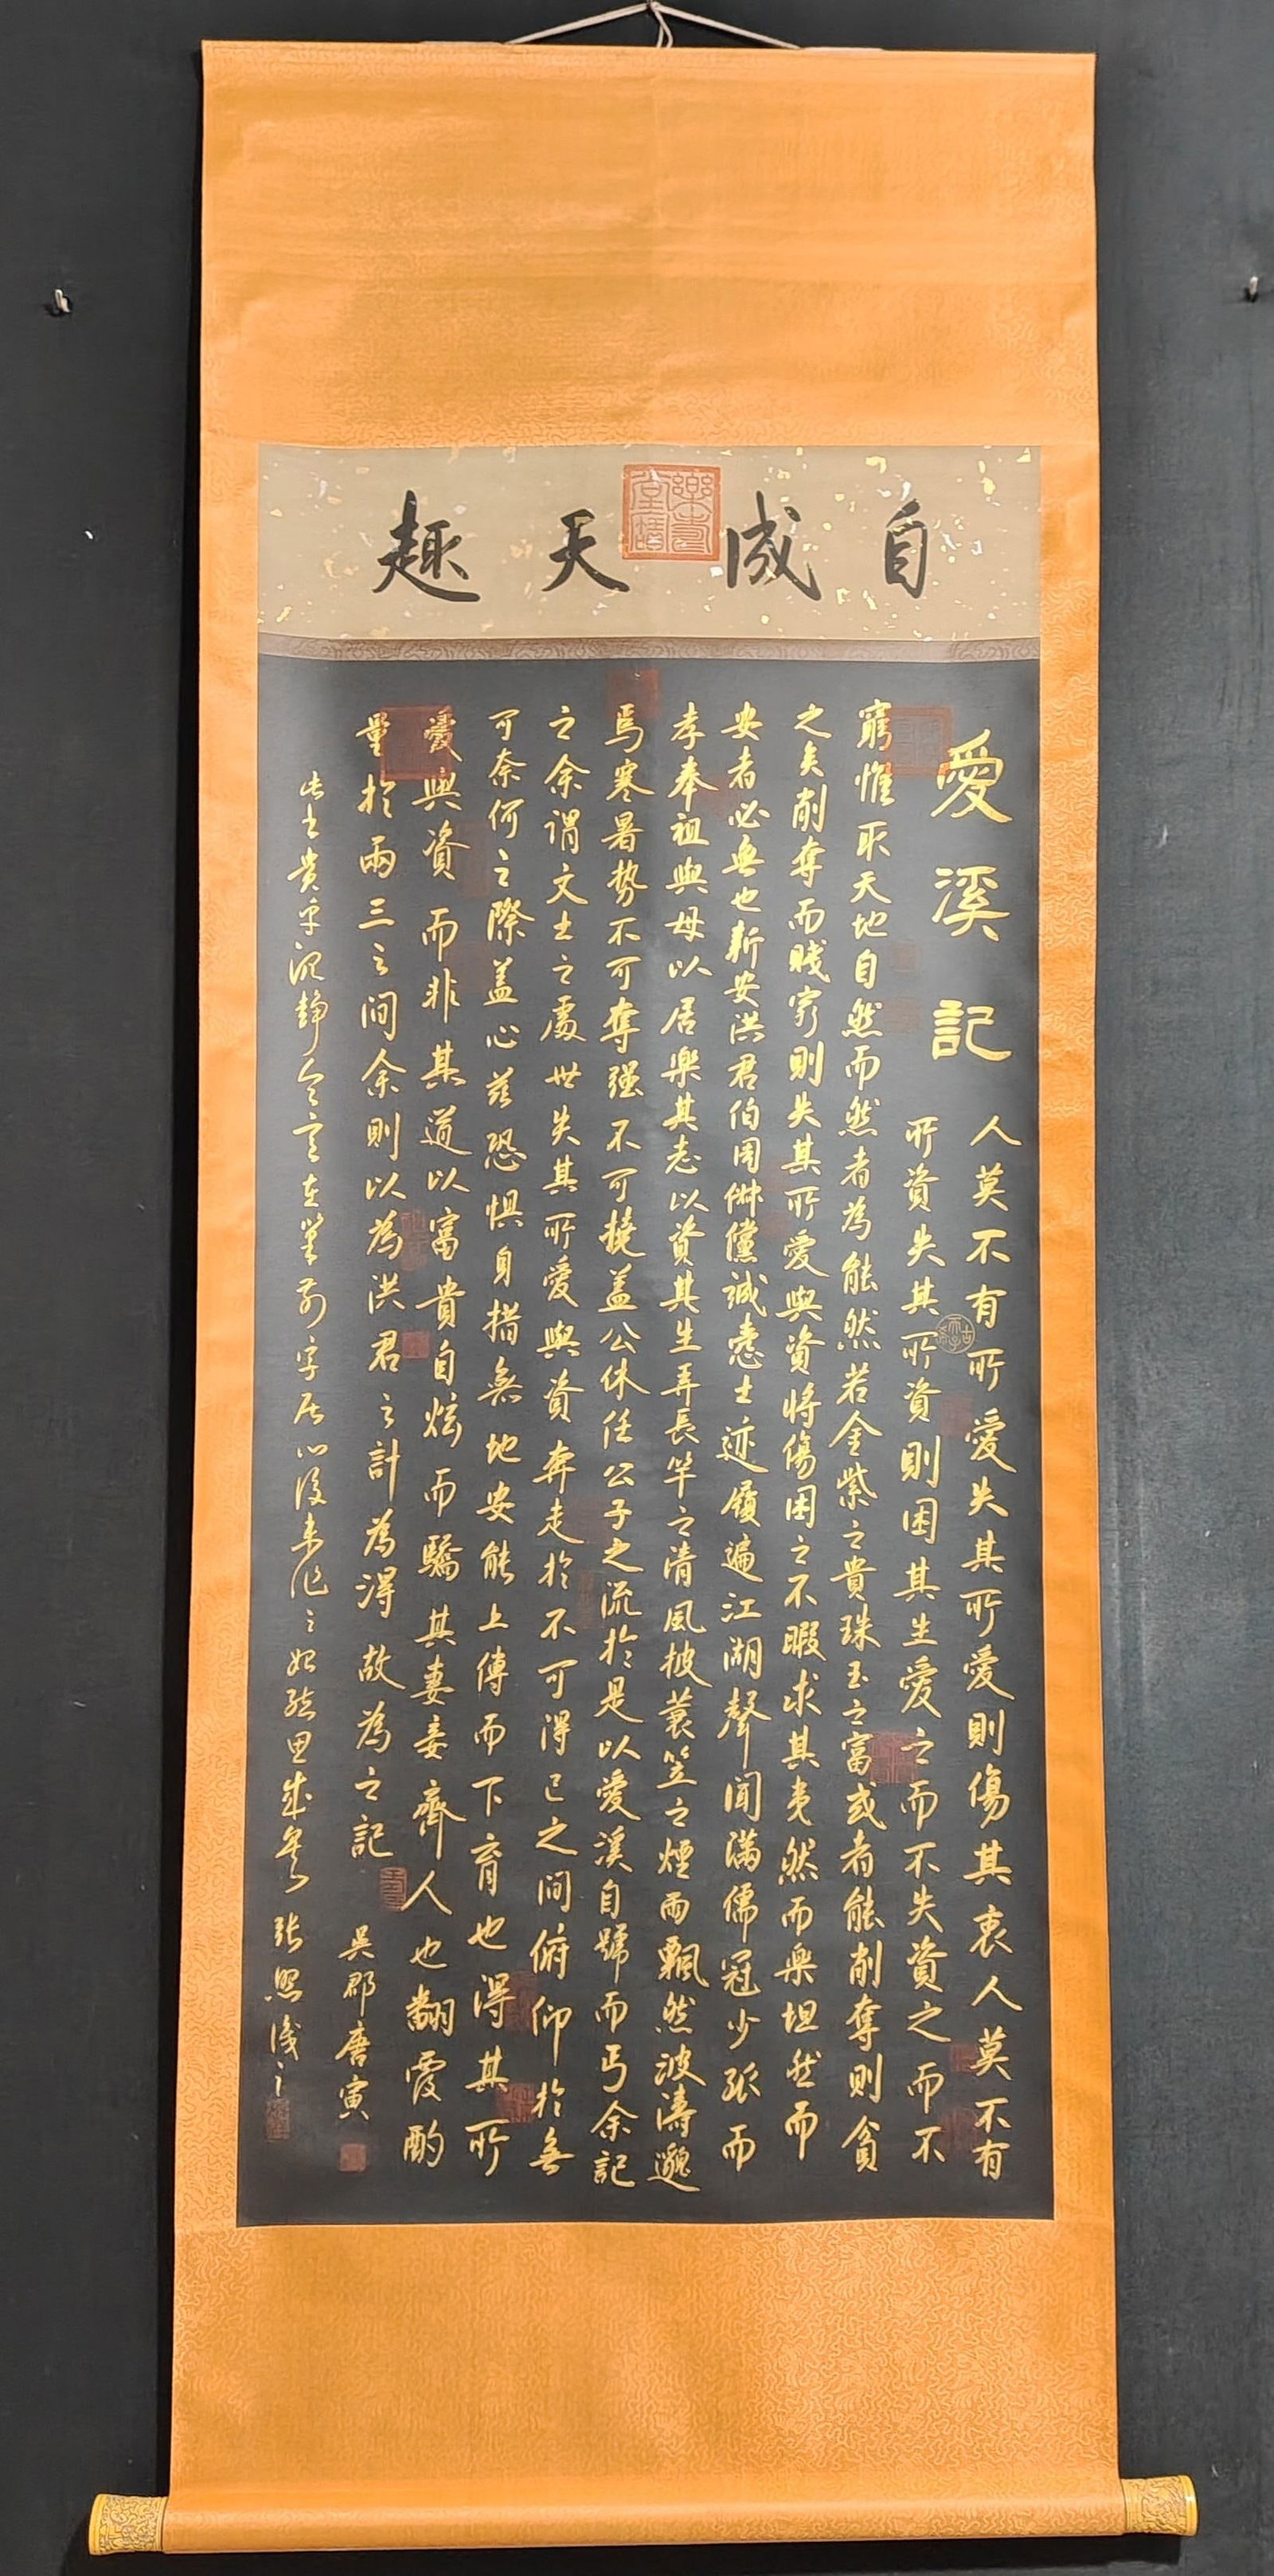 自成天趣
愛溪記
人莫不有所愛失其所愛則傷其衷人莫不有
所資失其所資則困其生愛之而不失資之而不
窮惟取天地自然而然者為能然若金紫之貴珠玉之富或者能削奪則貧
之矣削奪而賤窮則失其所愛與資將傷困之不暇求其夷然而樂坦然而
安者必無也新安洪君伯周倜儻誠慤士迹履遍江湖聲聞滿儒冠少孤而
孝奉祖與母以居樂其志以資其生弄長竿之清風披蓑笠之煙雨飄然波濤邈
焉寒暑勢不可奪强不可撓蓋公休任公子之流於是以愛溪自號而丐余記
之余謂文士之處世失其所愛與資奔走於不可得已之間俯仰於無
可奈何之際蓋心茲恐惧身措無地安能上傳而下育也得其所
愛與資而非其道以富貴自炫而驕其妻妾齊人也翻霞酌
量於兩三之間余則以為洪君之計為得故為之記
吳郡唐寅
此書貴乎沉靜令意在筆前字居心後未作之始結思成矣 張照識之